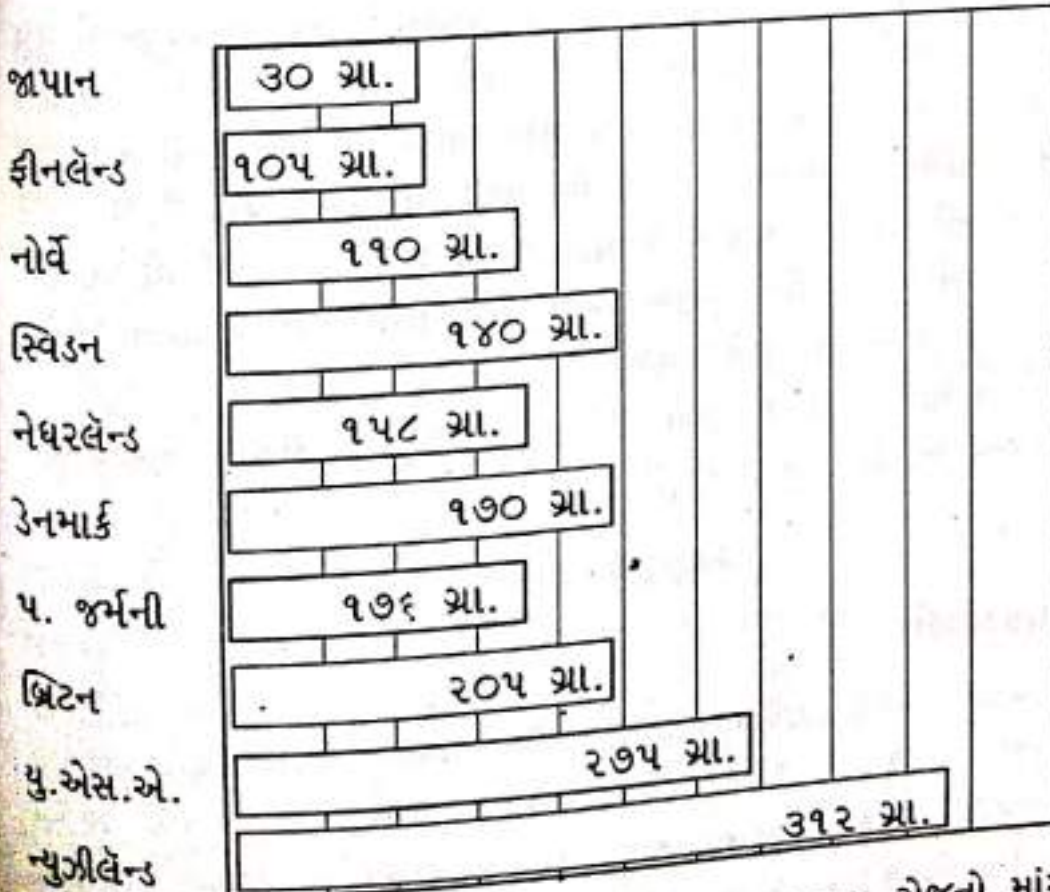 જાપાન ૩૦ ગ્રા.
ફીનલૅન્ડ ૧૦૫ ગ્રા.
નોર્વે ૧૧૦ ગ્રા.
સ્વિડન ૧૪૦ ગ્રા.
નેધરલૅન્ડ ૧૫૮ ગ્રા.
ડેનમાર્ક ૧૭૦ ગ્રા.
પ. જર્મની ૧૭૬ ગ્રા.
બ્રિટન ૨૦૫ ગ્રા.
યુ.એસ.એ. ૨૭૫ ગ્રા.
ન્યુઝીલૅન્ડ ૩૧૨ ગ્રા.